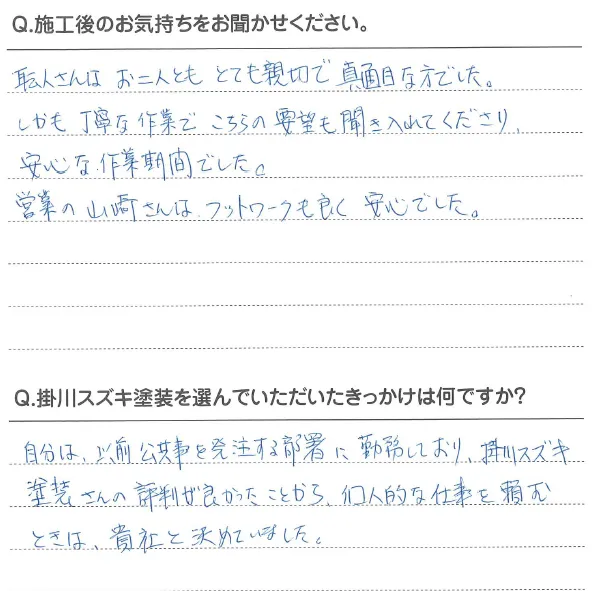 Q.施工後のお気持ちをお聞かせください。
職人さんは お二人とも とても親切で 真面目な方でした。
しかも 丁寧な作業で こちらの 要望も聞き入れてくださり、
安心な 作業期間でした。
営業の 山崎さんは、フットワークも良く 安心でした。
Q.掛川スズキ塗装を選んでいただいたきっかけは何ですか?
自分は、以前 公共事を発注する部署に 勤務しており、掛川スズキ
塗装さんの 評判が良かったことから、個人的な仕事を 頼む
ときは、貴社と 決めていました。